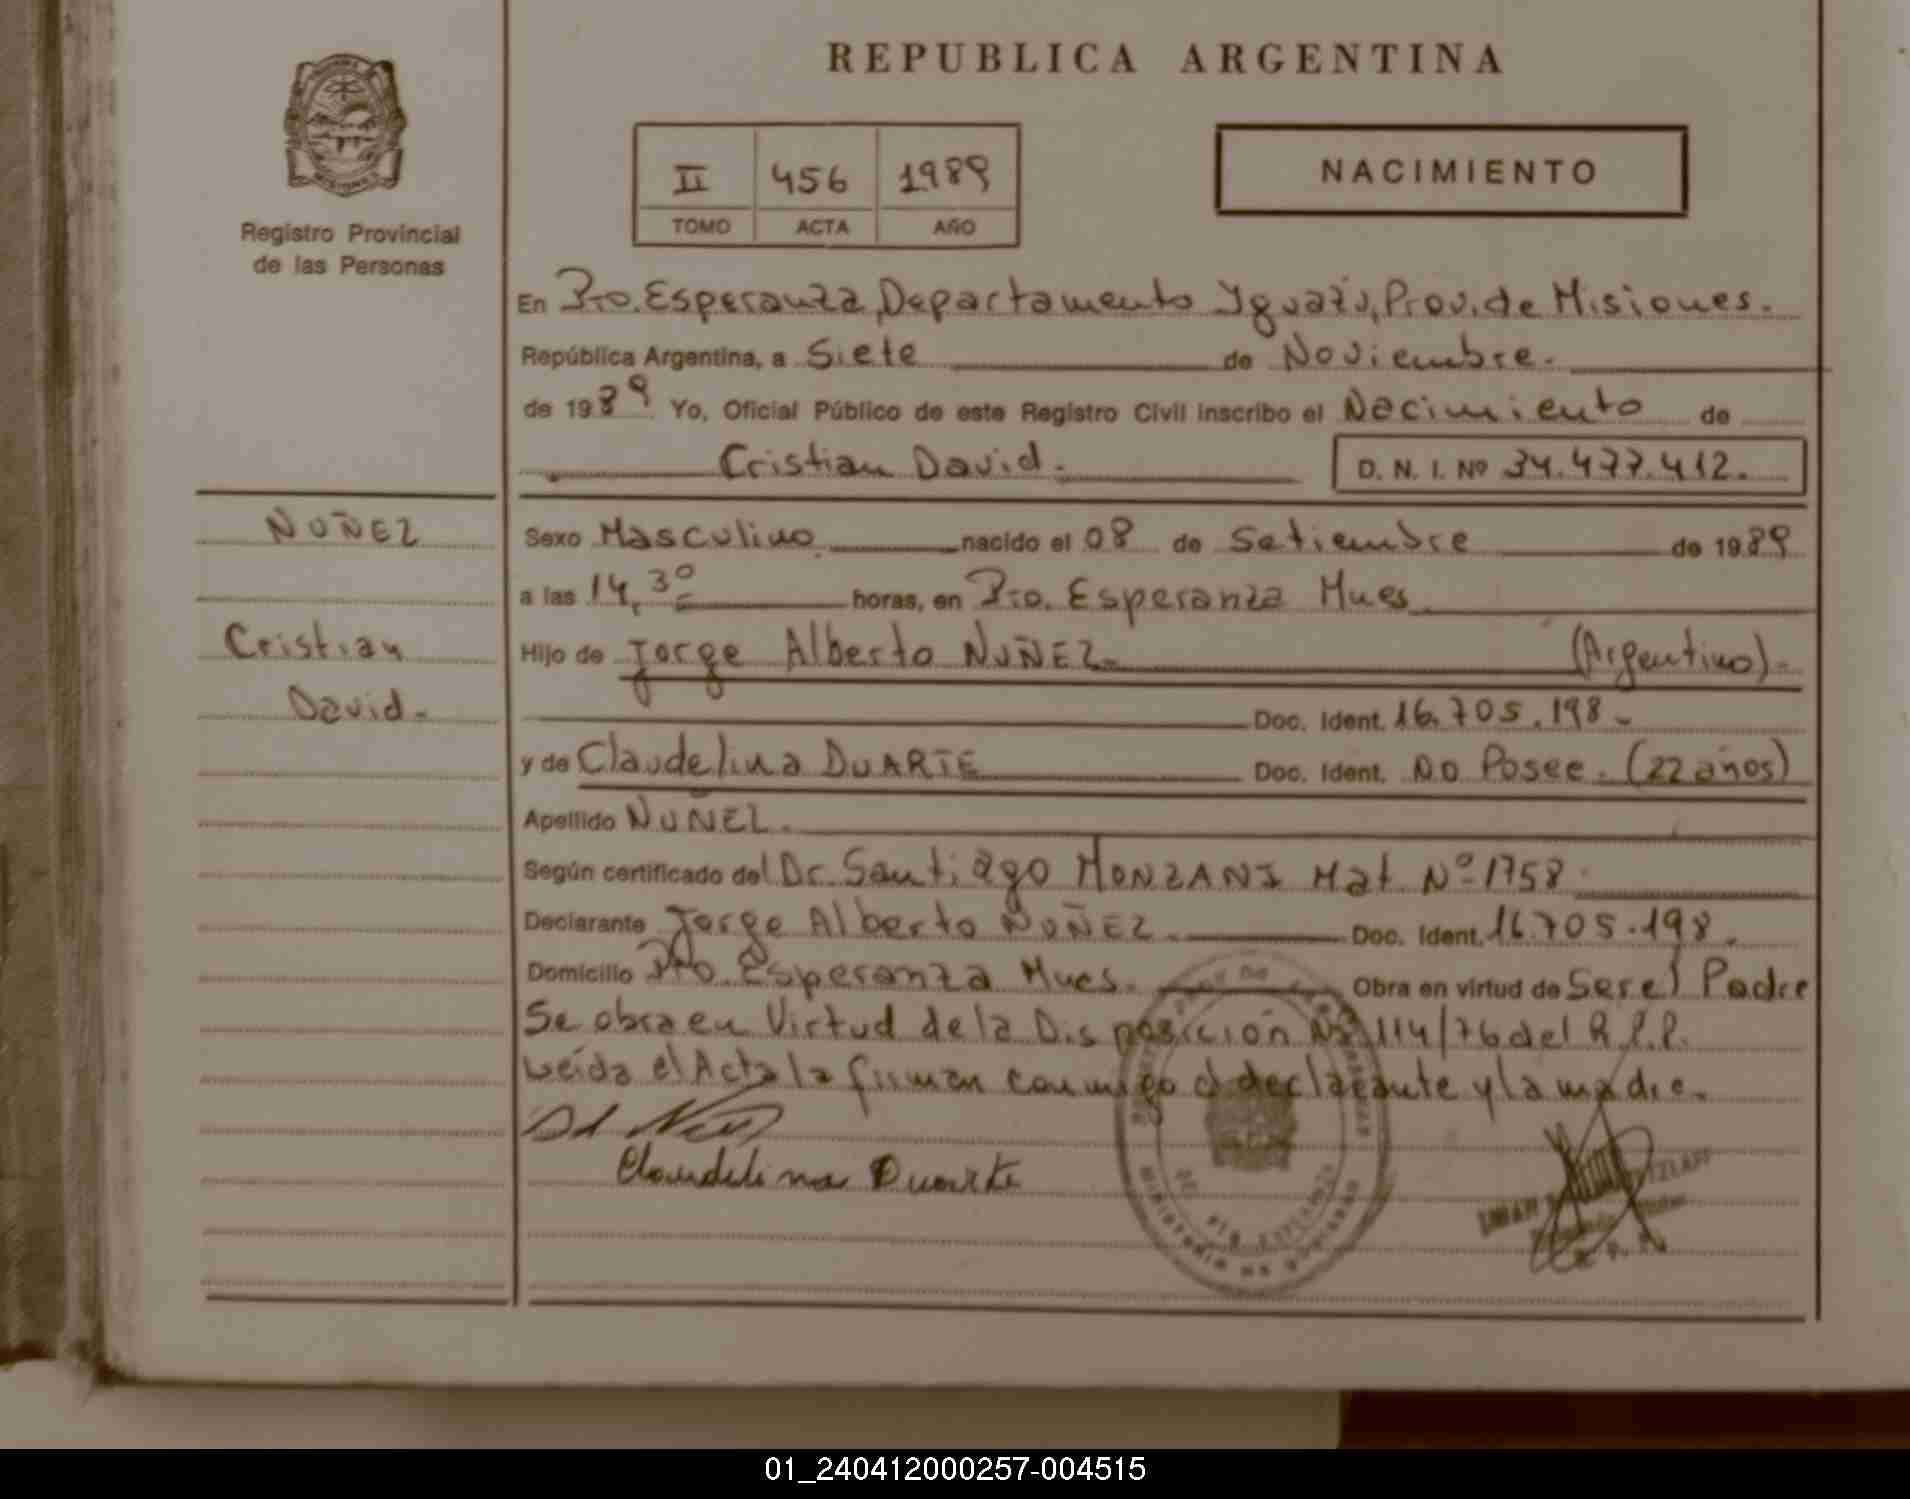 REPUBLICA ARGENTINA
Registro Provincial
de las Personas
II 456 1989
TOMO ACTA AÑO
NACIMIENTO
En Pto. Esperanza, Departamento Iguazú, Prov. de Misiones.
República Argentina, a Siete de Noviembre.
de 1989 Yo, Oficial Público de este Registro Civil inscribo el Nacimiento de
Cristian David. D. N. I. Nº 34.477.412.
NUÑEZ
Cristian
David.
Sexo Masculino nacido el 08 de Setiembre de 1989
a las 14,30 horas, en Pto. Esperanza Mnes
Hijo de Jorge Alberto NUÑEZ (Argentino).
Doc. Ident. 16.705.198.
y de Claudelina DUARTE Doc. Ident. No Posee. (22 años)
Apellido NUÑEZ.
Según certificado del Dr. Santiago MONZANI Mat. Nº 1758
Declarante Jorge Alberto NUÑEZ. Doc. Ident. 16.705.198.
Domicilio Pto. Esperanza Mnes. Obra en virtud de Ser el Padre
Se obra en Virtud de la Disposición Nº 114/76 del R.P.P.
Leída el Acta la firman conmigo el declarante y la madre.
Claudelina Duarte
01_240412000257-004515